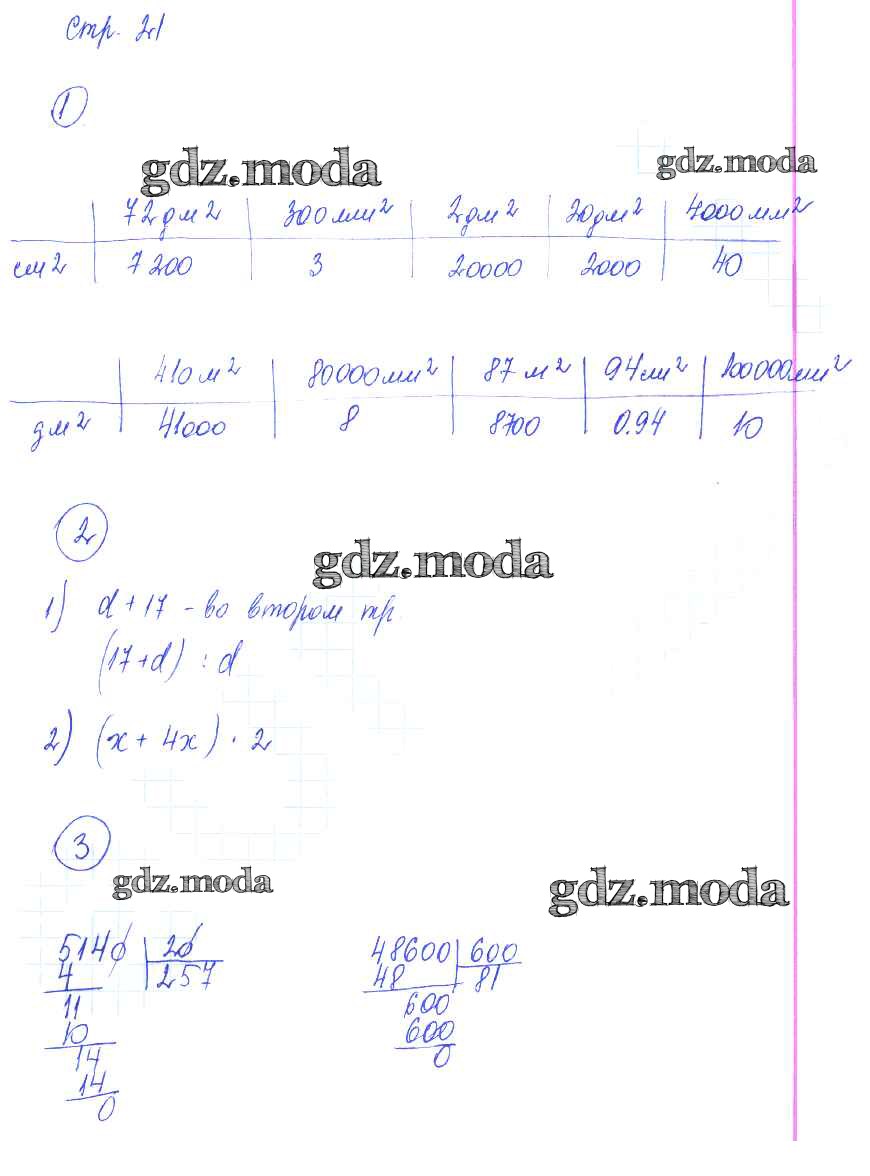 стр. 21
1
gdz.moda gdz.moda
72 дм2 300 мм2 2 дм2 20 дм2 4000 мм2
см2 7 200 3 20000 2000 40
410 м2 80000 мм2 87 м2 94 см2 100000 мм2
дм2 41000 8 8700 0.94 10
2
gdz.moda
1) d + 17 - во втором тр.
(17 + d) : d
2) (x + 4x) · 2
3
gdz.moda gdz.moda
5140 20 48600 600
4 257 48 81
11 600
10 600
14 0
14
0